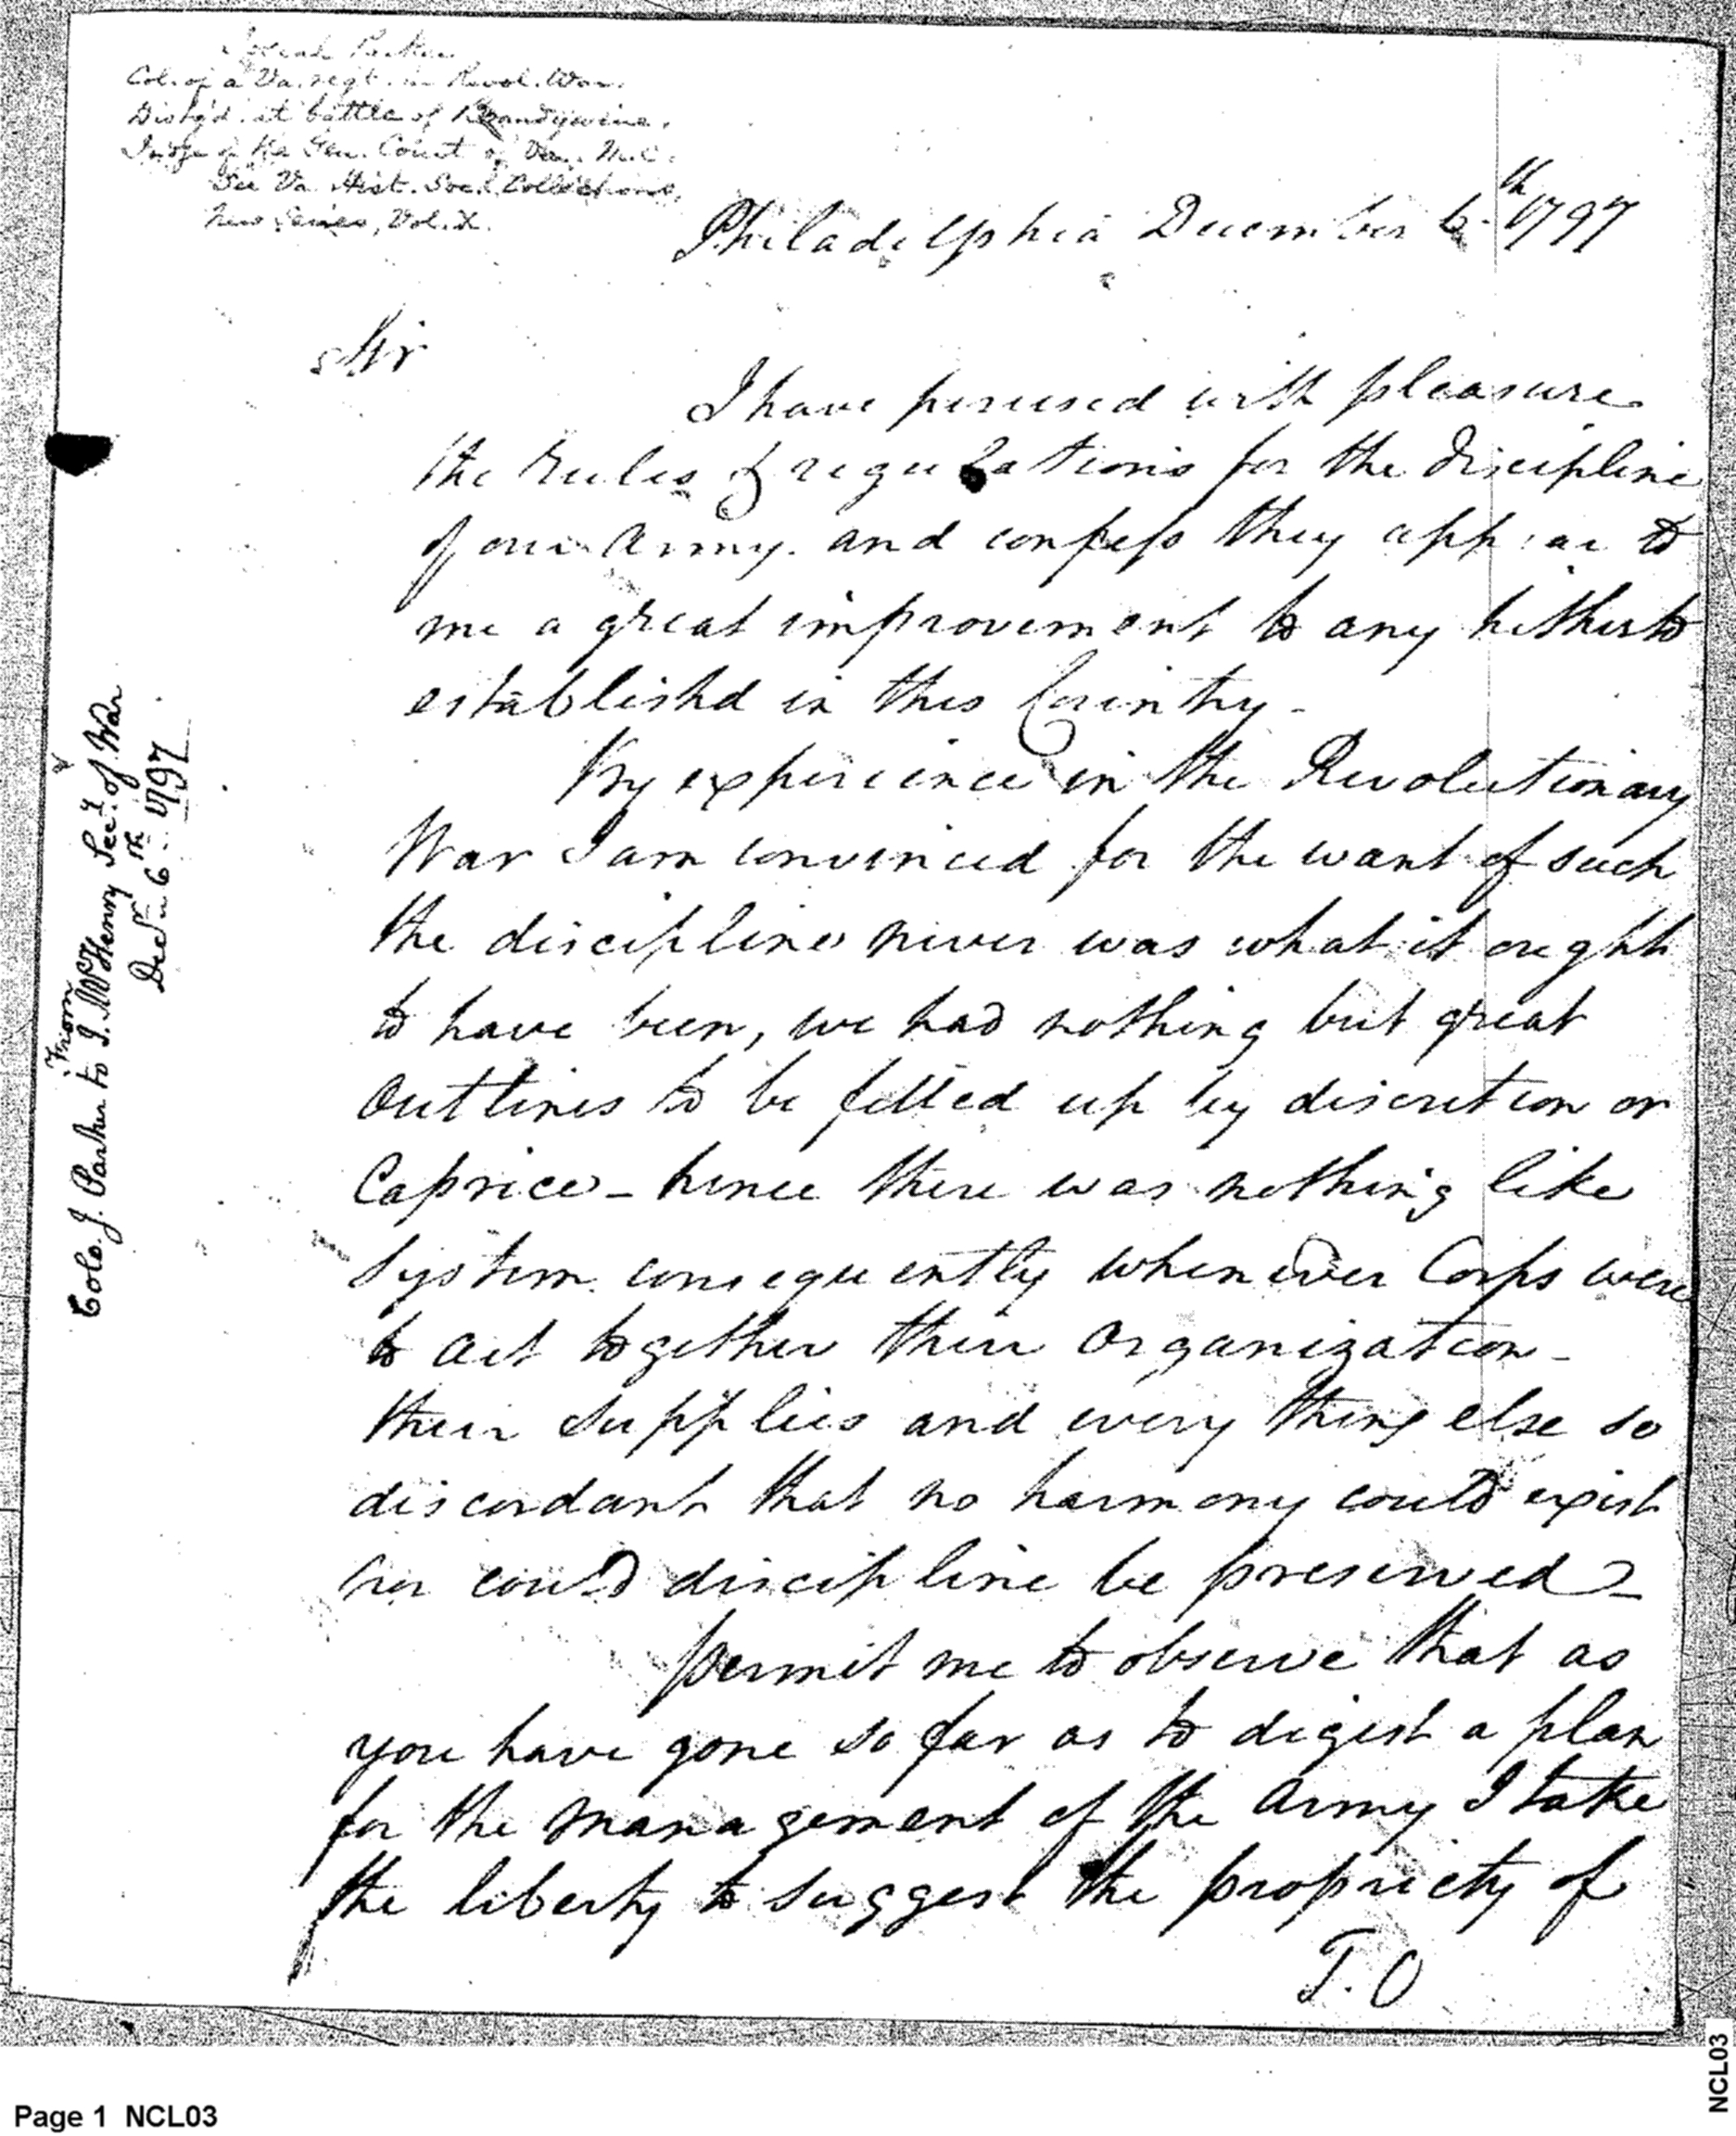 Josiah Parker
Col. of a Va. regt. in Revol. War.
Disting'd. at battle of Brandywine.
of the Gen. Court of Va. M.C.
See Va. Hist. Soc. Collections,
New Series, Vol. X.
Philadelphia December 6th 1797
Sir
I have perused with pleasure
the rules & regulations for the discipline
of our Army. and confess they appear to
me a great improvement to any hitherto
establishd in this Country -
By experience in the Revolutionary
War I am convinced for the want of such
the discipline never was what it ought
to have been, we had nothing but great
Outlines to be filled up by discretion or
Caprice - hence there was nothing like
System. consequently when ever Corps were
to act together their Organization -
their supplies and every thing else so
discordant that no harmony could exist
nor could discipline be preserved -
permit me to observe that as
you have gone so far as to digest a plan
for the management of the Army I take
the liberty to suggest the propriety of
T. O
From
Colo. J. Parker to J. McHenry Secy. of War
Decr. 6th 1797
Page 1 NCL03
NCL03